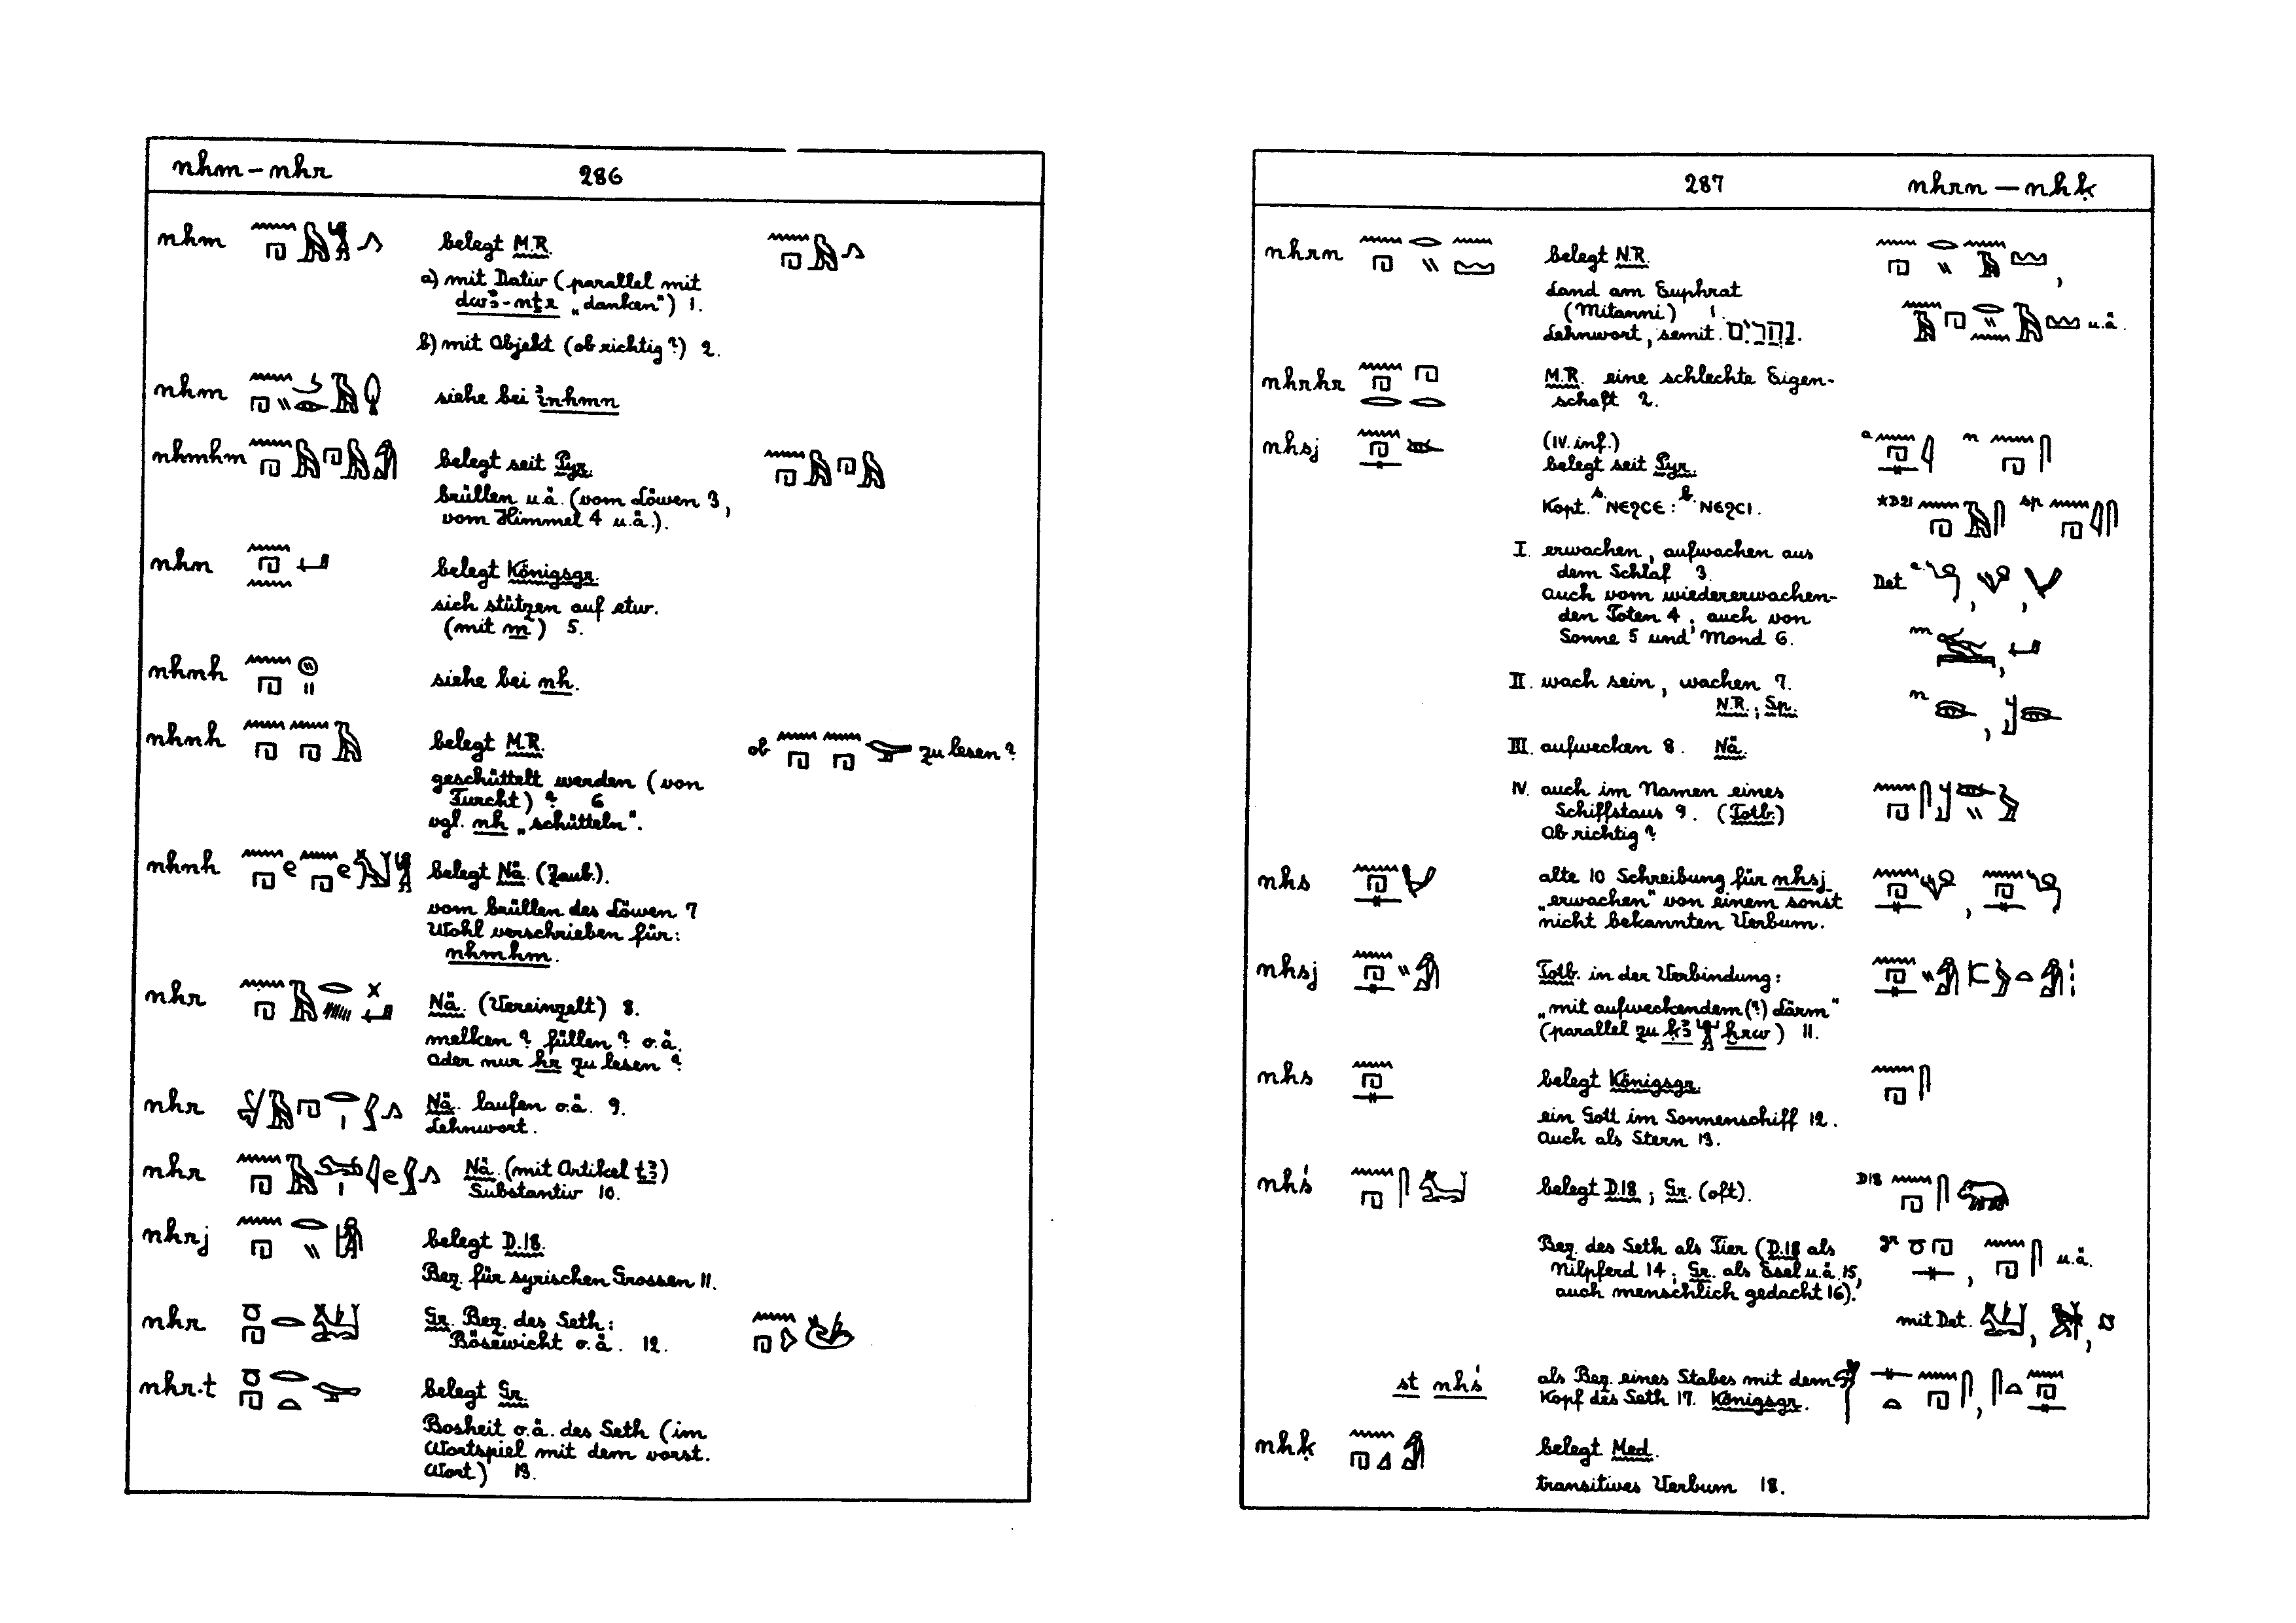 nhm – nhr 286
nhm belegt M.R.
a) mit Dativ (parallel mit
dwꜣ-nṯr „danken“) 1.
b) mit Objekt (ob richtig?) 2.
nhm siehe bei ꜣnhmn
nhmhm belegt seit Pyr.
brüllen u.ä. (vom Löwen 3,
vom Himmel 4 u.ä.).
nhn belegt Königsgr.
sich stützen auf etw.
(mit m) 5.
nhnh siehe bei nh.
nhnh belegt M.R. ob zu lesen?
geschüttelt werden (von
Furcht)? 6
vgl. nh „schütteln“.
nhnh belegt Nä. (Zaub.).
vom brüllen des Löwen 7
Wohl verschrieben für:
nhmhm.
nhr Nä. (Vereinzelt) 8.
melken? füllen? o.ä.
Oder nur hr zu lesen?
nhr Nä. laufen o.ä. 9.
Lehnwort.
nhr Nä. (mit Artikel tꜣ)
Substantiv 10.
nhrj belegt D.18.
Bez. für syrischen Grossen 11.
nhr Gr. Bez. des Seth:
Bösewicht o.ä. 12.
nhr.t belegt Gr.
Bosheit o.ä. des Seth (im
Wortspiel mit dem vorst.
Wort) 13.
287 nhrn – nhḳ
nhrn belegt N.R.
Land am Euphrat
(Mitanni) 1.
u.ä.
Lehnwort, semit. נַהֲרַיִם.
nhrhr M.R. eine schlechte Eigen-
schaft 2.
nhsj (IV. inf.) a n
belegt seit Pyr.
Kopt. s. ⲚⲈϨⲤⲈ : b. ⲚⲈϨⲤⲒ. *D21 sp
I. erwachen, aufwachen aus
dem Schlaf 3. Det. a.
auch vom wiedererwachen-
den Toten 4; auch von
Sonne 5 und Mond 6. m
II. wach sein, wachen 7.
N.R.; Sp. n
III. aufwecken 8. Nä.
IV. auch im Namen eines
Schiffstaus 9. (Totb.)
Ob richtig?
nhs alte 10 Schreibung für nhsj
„erwachen“ von einem sonst
nicht bekannten Verbum.
nhsj Totb. in der Verbindung:
„mit aufweckendem(?) Lärm“
(parallel zu ḳꜣ ḫrw) 11.
nhs belegt Königsgr.
ein Gott im Sonnenschiff 12.
Auch als Stern 13.
nhś belegt D.18; Gr. (oft). D18
Bez. des Seth als Tier (D.18 als gr
Nilpferd 14; Gr. als Esel u.ä. 15, u.ä.
auch menschlich gedacht 16).
mit Det.
st nhś als Bez. eines Stabes mit dem
Kopf des Seth 17. Königsgr.
nhḳ belegt Med.
transitives Verbum 18.